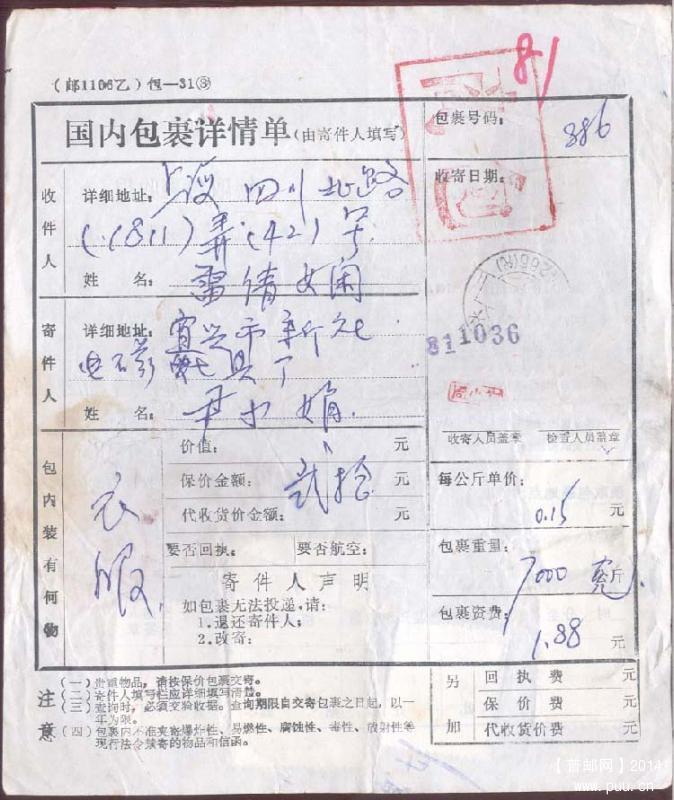 81
(邮1106乙)包—31③
国内包裹详情单(由寄件人填写)
包裹号码:
386
收件人
详细地址:
四川北路
(1811)弄(42)号
姓名:
雷倩
收寄日期:
811036
寄件人
详细地址:宜兴市新
姓名:
尹小娟
收寄人员盖章
检查人员盖章
包内装有何物
衣服
价值:
元
保价金额:
贰拾
元
代收货价金额:
元
要否回执:
要否航空:
寄件人声明
如包裹无法投递,请:
1.退还寄件人;
2.改寄:
每公斤单价:
0.15
元
包裹重量:
7000
斤
包裹资费:
1.88
元
注意
(一)贵重物品,请按保价包裹交寄。
(二)寄件人填写栏应详细填写清楚。
(三)查询时,必须交验收据。查询期限自交寄包裹之日起,以一
年为限。
(四)包裹内不准夹寄爆炸性、易燃性、腐蚀性、毒性、放射性等
现行法令禁寄的物品和信函。
另加
回执费
元
保价费
元
代收货价费
元
【普邮网】2014
www.puu.cn